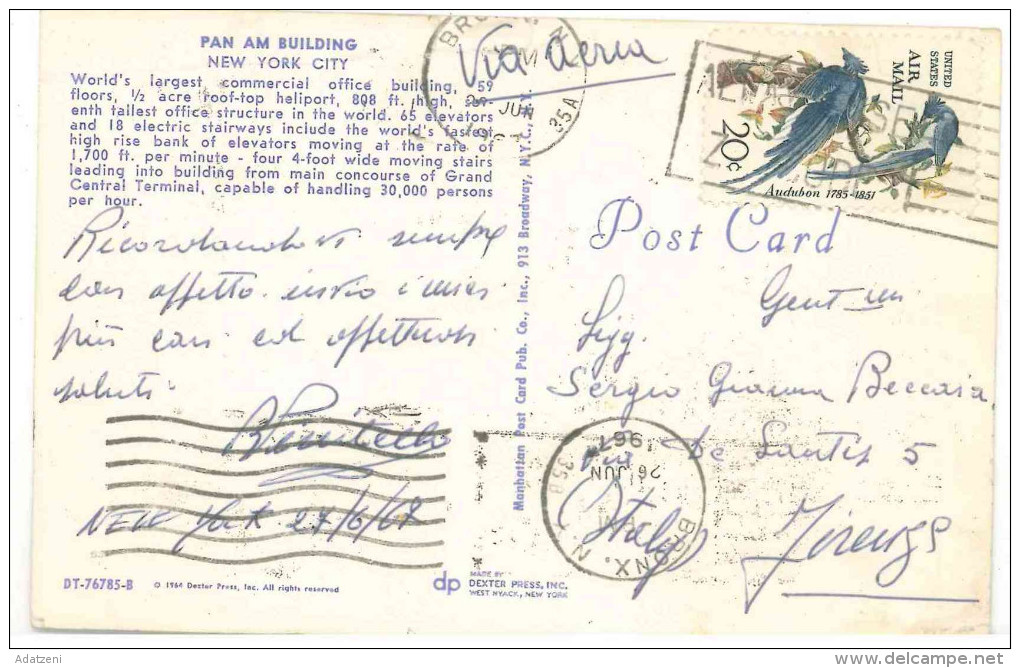 PAN AM BUILDING
NEW YORK CITY
World's largest commercial office building, 59
floors, ½ acre roof-top heliport, 808 ft. high, sev-
enth tallest office structure in the world. 65 elevators
and 18 electric stairways include the world's fastest
high rise bank of elevators moving at the rate of
1,700 ft. per minute - four 4-foot wide moving stairs
leading into building from main concourse of Grand
Central Terminal, capable of handling 30,000 persons
per hour.
Via aerea
UNITED
STATES
AIR
MAIL
20c
Audubon 1785-1851
Post Card
Ricordandovi sempre
con affetto invio i miei
più cari ed affettuosi
saluti.
NEW York 24/6/67
Gent mi
Sigg.
Sergio Gianna Beccaria
De Santis 5
Firenze
Italy
BRONX, N
26 JUN
1967
Manhattan Post Card Pub. Co., Inc., 913 Broadway, N.Y.C., N.Y.
DT-76785-B
© 1964 Dexter Press, Inc. All rights reserved
dp
MADE BY
DEXTER PRESS, INC.
WEST NYACK, NEW YORK
Adatzeni
delcampe.net